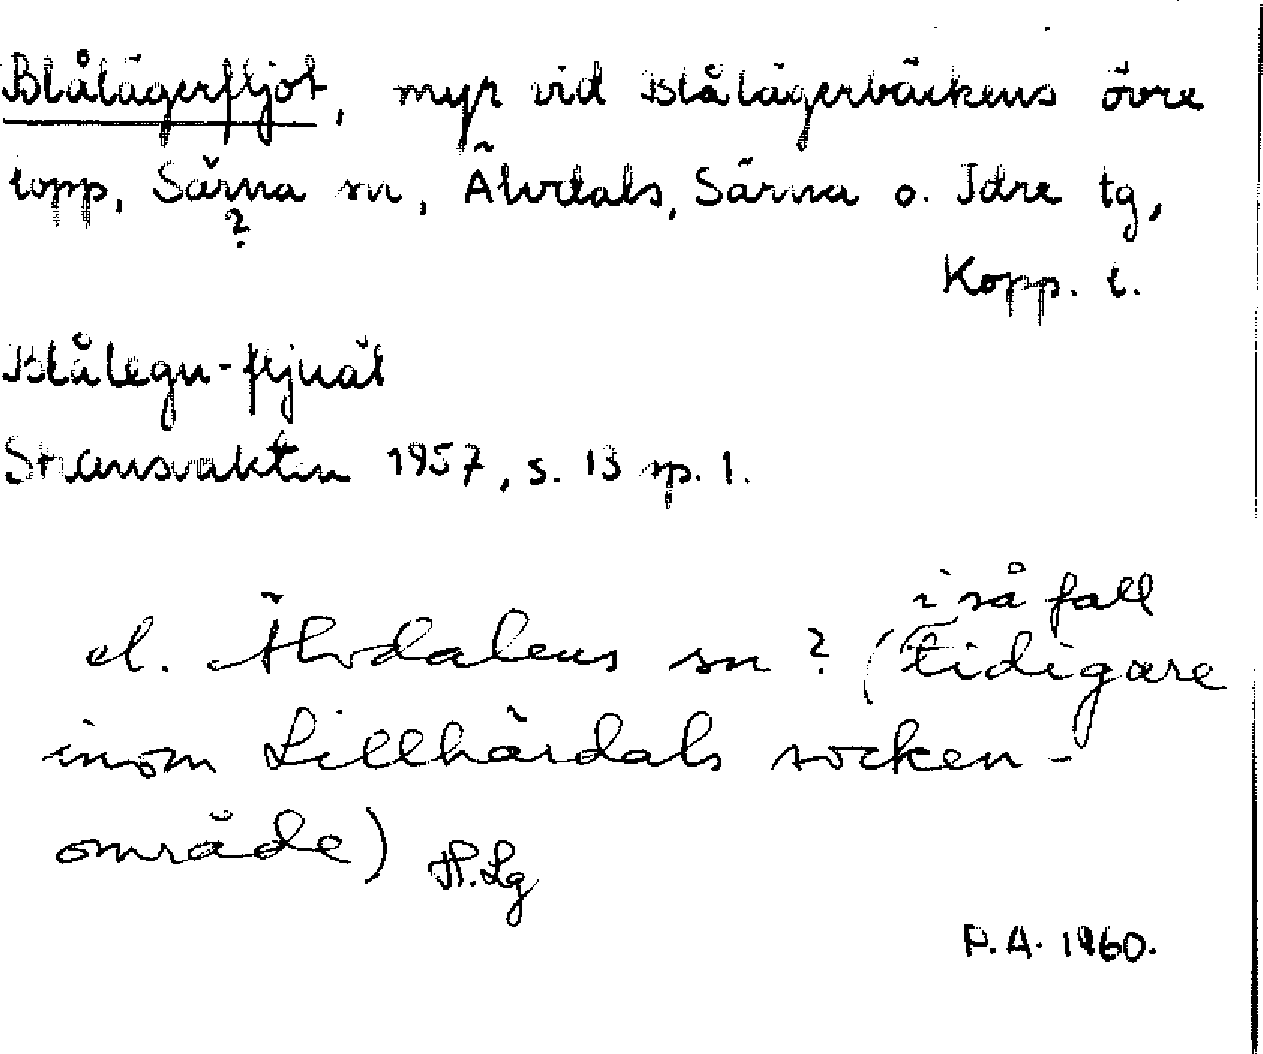 Blålägerfljot, myr vid Blålägerbäckens övre
lopp, Särna sn, Älvdals, Särna o. Idre tg,
?
Kopp. l.
Blålegu-fljuät
Stransvakten 1957, s. 13 sp. 1.
i så fall
el. Älvdalens sn? (tidigare
inom Lillhärdals socken-
område) H.Lg
P.A. 1960.